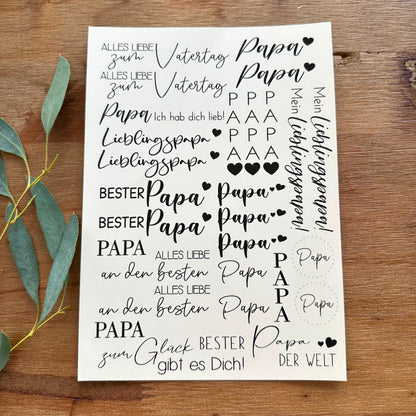 ALLES LIEBE
zum Vatertag
Papa
ALLES LIEBE
zum Vatertag
Papa
Papa Ich hab dich lieb!
Lieblingspapa
Lieblingspapa
P P P
A A A
P P P
A A A
Mein Lieblingspapa!
Mein Lieblingspapa!
BESTER Papa
BESTER Papa
Papa
Papa
Papa
PAPA
ALLES LIEBE
an den besten Papa
ALLES LIEBE
an den besten Papa
PAPA
Papa
Papa
PAPA
zum Glück
gibt es Dich!
BESTER Papa
DER WELT